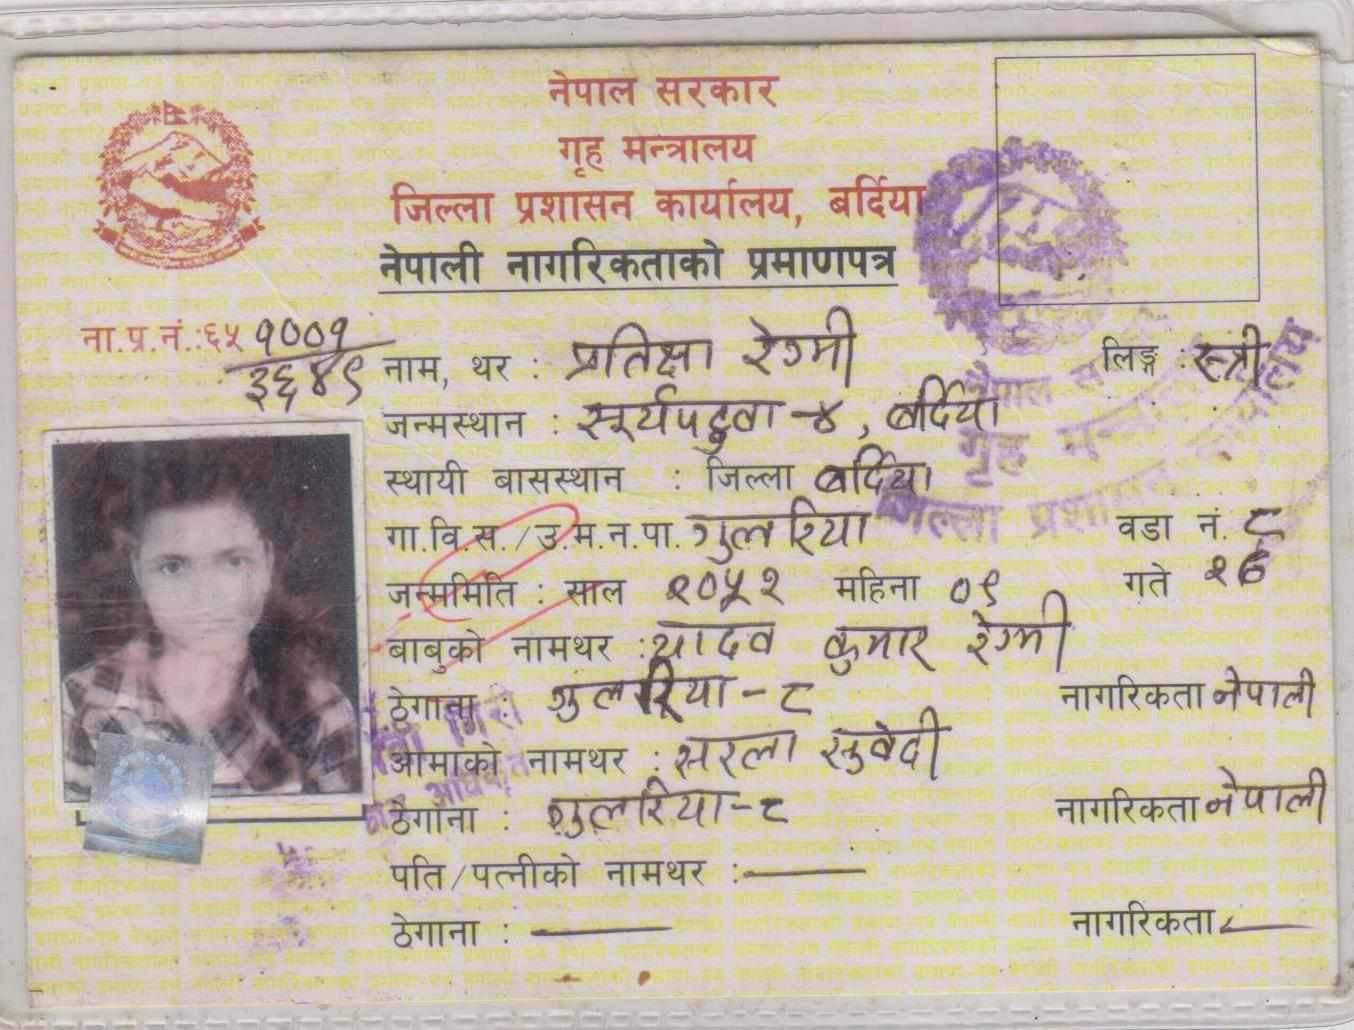 नेपाल सरकार
गृह मन्त्रालय
जिल्ला प्रशासन कार्यालय, बर्दिया
नेपाली नागरिकताको प्रमाणपत्र
ना.प्र.नं.:६५ १००१
३६४९
नाम, थर : प्रतिक्षा रेग्मी लिङ्ग : स्त्री
जन्मस्थान : सूर्यपटुवा -४, बर्दिया
स्थायी बासस्थान : जिल्ला बर्दिया
गा.वि.स./उ.म.न.पा. गुलरिया वडा नं. ८
जन्ममिति : साल २०५२ महिना ०९ गते २६
बाबुको नामथर : यादव कुमार रेग्मी
ठेगाना : गुलरिया - ८ नागरिकता नेपाली
आमाको नामथर : सरला सुवेदी
ठेगाना : गुलरिया - ८ नागरिकता नेपाली
पति/पत्नीको नामथर :
ठेगाना : नागरिकता
नेपाल
गृह मन्त्रालय
जिल्ला प्रशासन कार्यालय